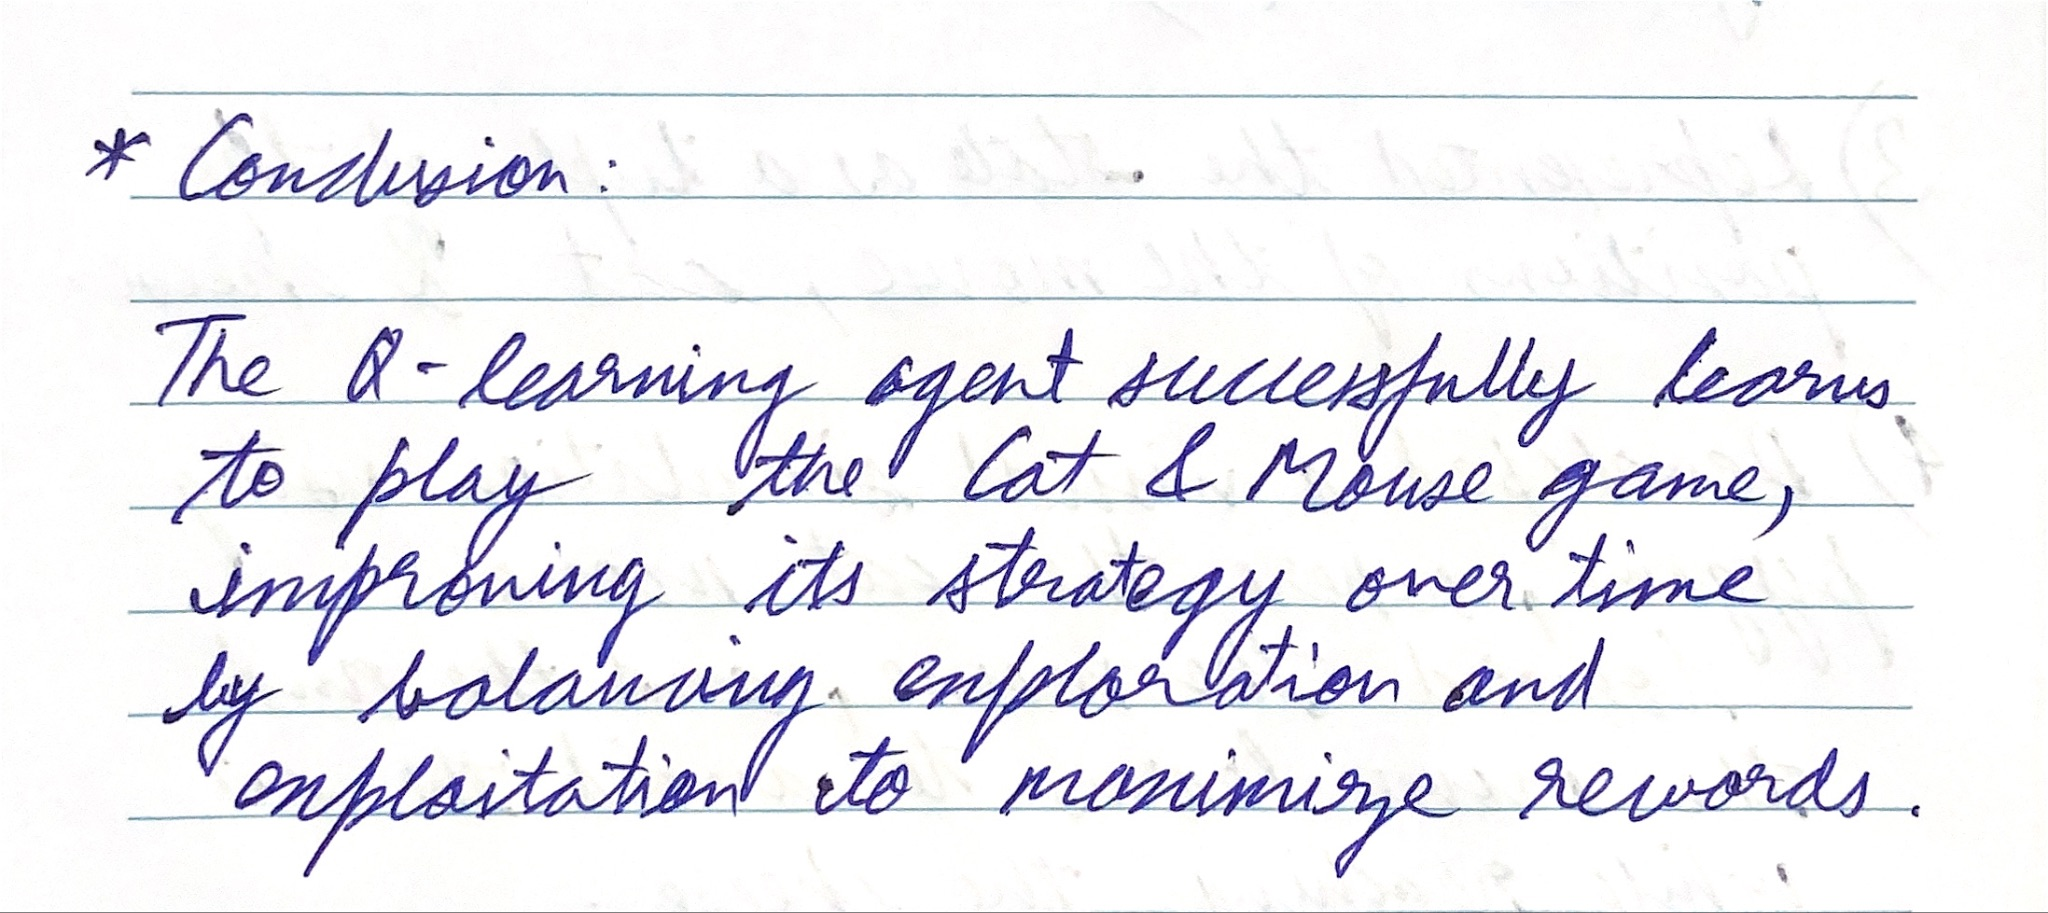 * Conclusion:
The Q-learning agent successfully learns
to play the Cat & Mouse game,
improving its strategy over time
by balancing exploration and
exploitation to maximize rewards.